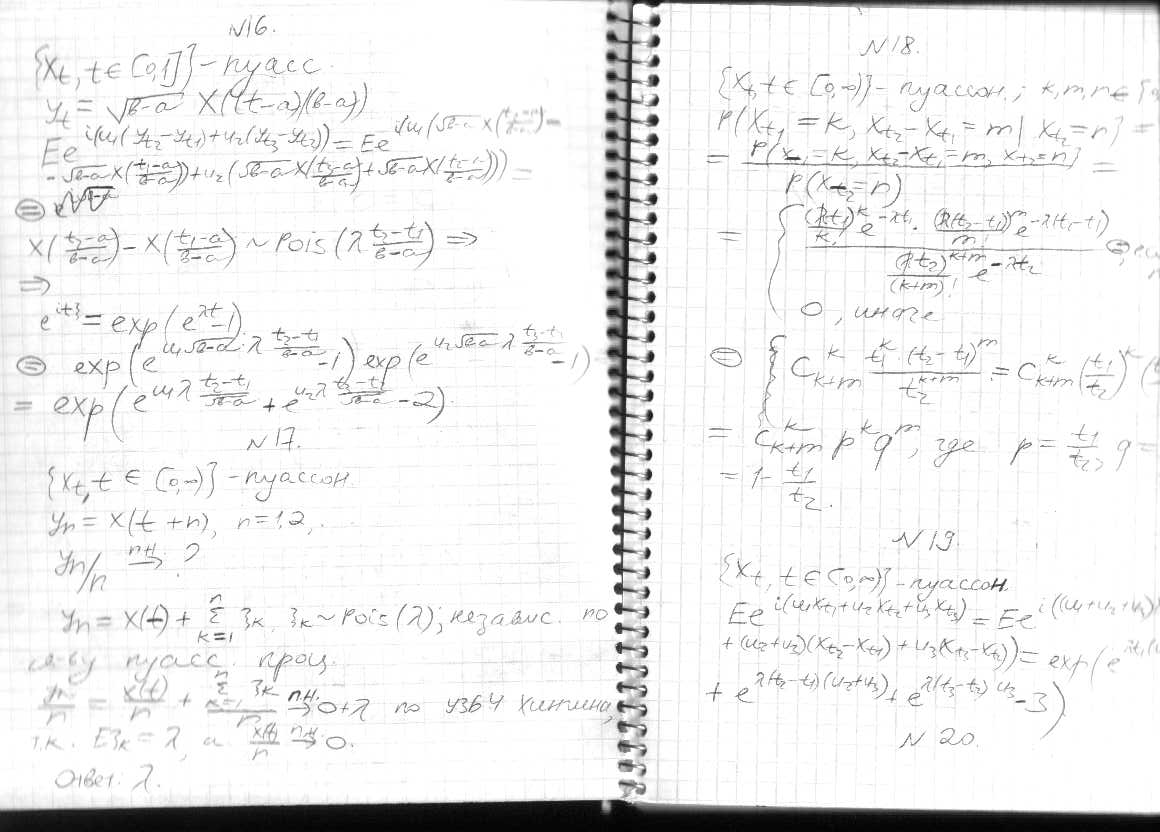 N16.
{X_t, t ∈ [0,1]} - пуасс.
y_t = √(в-а) X((t-a)/(в-а))
Ee^{i(u_1(y_{t_2}-y_{t_1})+u_2(y_{t_3}-y_{t_2}))} = Ee^{i(u_1(√(в-а) X((t_2-a)/(в-а)) -
- √(в-а) X((t_1-a)/(в-а)) + u_2(√(в-а) X((t_3-a)/(в-а)) + √(в-а) X((t_2-a)/(в-а))))} =
⊜
X((t_2-a)/(в-а)) - X((t_1-a)/(в-а)) ~ Pois(λ (t_2-t_1)/(в-а)) ⇒
⇒
e^{itξ} = exp(e^{λt}-1)
⊜ exp(e^{u_1√(в-а) λ (t_2-t_1)/(в-а)} -1) exp(e^{u_2√(в-а) λ (t_3-t_2)/(в-а)} -1)
= exp(e^{u_1 λ (t_2-t_1)/√(в-а)} + e^{u_2 λ (t_3-t_2)/√(в-а)} - 2).
N17.
{X_t, t ∈ [0,∞)} - пуассон.
y_n = X(t+n), n=1,2,..
y_n/n →^{п.н.} ?
y_n = X(t) + Σ_{k=1}^{n} ξ_k, ξ_k ~ Pois(λ), независ. по
св-ву пуасс. проц.
y_n/n = X(t)/n + (Σ_{k=1}^{n} ξ_k)/n →^{п.н.} 0+λ по УЗБЧ Хинчина,
т.к. Eξ_k = λ, а X(t)/n →^{п.н.} 0.
Ответ: λ.
N18.
{X_t, t ∈ [0,∞)} - пуассон.; k, m, n ∈ {0
P(X_{t_1} = k, X_{t_2} - X_{t_1} = m | X_{t_2} = n) =
= P(X_{t_1} = k, X_{t_2} - X_{t_1} = m, X_{t_2} = n) / P(X_{t_2} = n) =
= { ((λt_1)^k/k! e^{-λt_1} · (λ(t_2-t_1))^m/m! e^{-λ(t_2-t_1)}) / ((λt_2)^{k+m}/(k+m)! e^{-λt_2}) ⊜,
0, иначе
⊜ { C_{k+m}^k (t_1^k · (t_2-t_1)^m)/t_2^{k+m} = C_{k+m}^k (t_1/t_2)^k
= C_{k+m}^k p^k q^m, где p = t_1/t_2, q =
= 1 - t_1/t_2.
N19.
{X_t, t ∈ [0,∞)} - пуассон.
Ee^{i(u_1X_{t_1}+u_2X_{t_2}+u_3X_{t_3})} = Ee^{i((u_1+u_2+u_3)
+ (u_2+u_3)(X_{t_2}-X_{t_1}) + u_3(X_{t_3}-X_{t_2}))} = exp(e^{λt_1(u
+ e^{λ(t_2-t_1)(u_2+u_3)} + e^{λ(t_3-t_2)u_3} - 3)
N20.